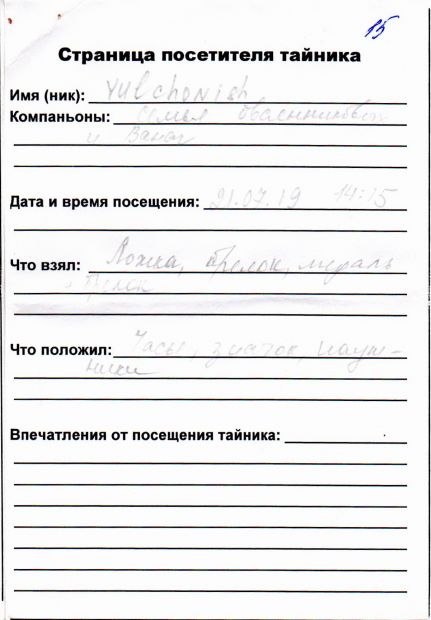 15
Страница посетителя тайника
Имя (ник): Yulchonish
Компаньоны: Семья Овсянниковых
и Ванаг
Дата и время посещения: 21.07.19 14:15
Что взял: Ложка, брелок, медаль
Что положил: Часы, значок, науш-
ники
Впечатления от посещения тайника: